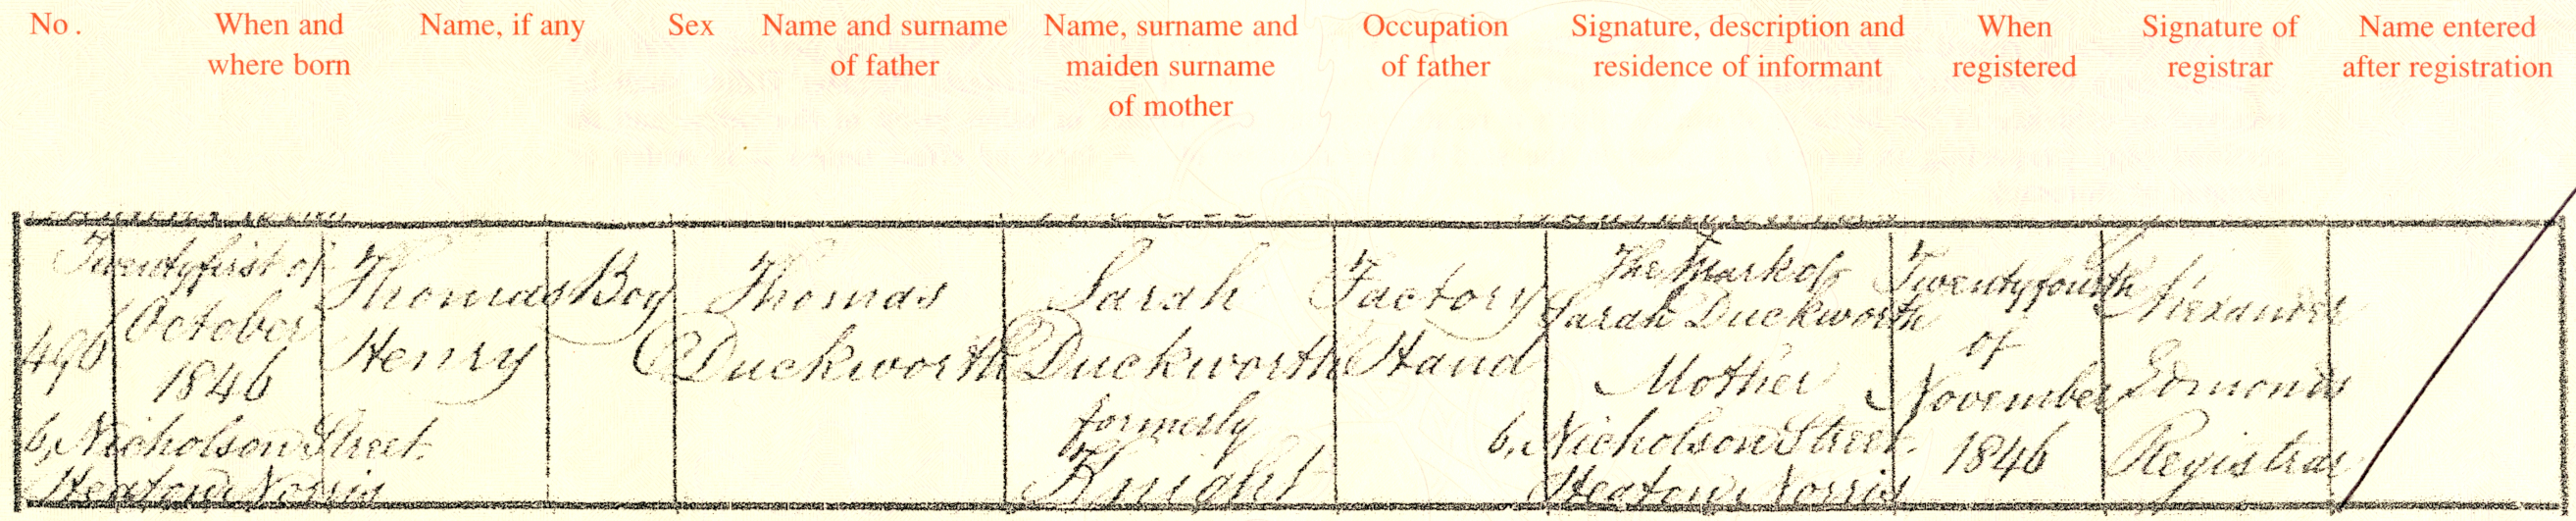 No.
When and
where born
Name, if any
Sex
Name and surname
of father
Name, surname and
maiden surname
of mother
Occupation
of father
Signature, description and
residence of informant
When
registered
Signature of
registrar
Name entered
after registration
496
Twentyfirst of
October
1846
6, Nicholson Street.
Heaton Norris
Thomas
Henry
Boy
Thomas
Duckworth
Sarah
Duckworth
formerly
Knight
Factory
Hand
The Mark of
Sarah Duckworth
Mother
6, Nicholson Street.
Heaton Norris
Twentyfourth
of
November
1846
Alexander
Edmonds
Registrar